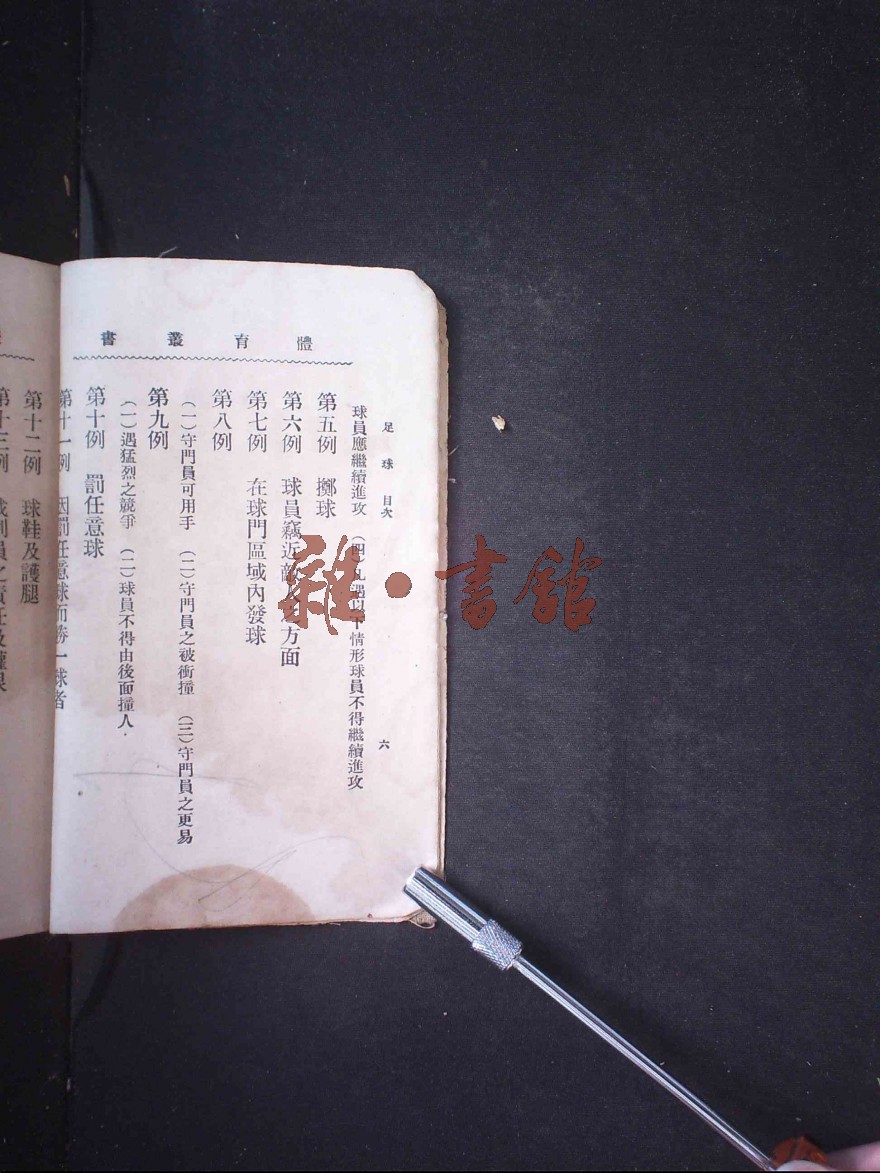 體育叢書
足球 目次 六
球員應繼續進攻 (四)凡遇以下情形球員不得繼續進攻
第五例 擲球
第六例 球員竊近敵人之方面
第七例 在球門區域內發球
第八例
(一)守門員可用手 (二)守門員之被衝撞 (三)守門員之更易
第九例
(一)遇猛烈之競爭 (二)球員不得由後面撞人.
第十例 罰任意球
第十一例 因罰任意球而勝一球者
第十二例 球鞋及護腿
第十三例 裁判員之責任及權
雜·書館